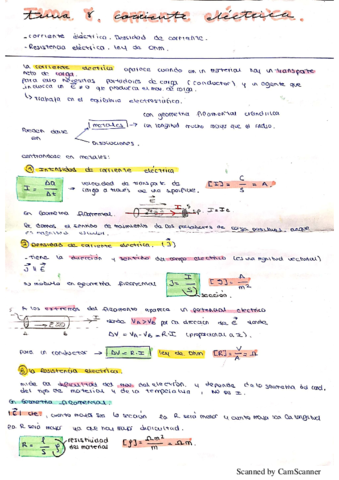 Tema 8. corriente eléctrica.
- corriente eléctrica. Densidad de corriente.
- Resistencia eléctrica. Ley de Ohm.
La corriente eléctrica aparece cuando en un material hay un transporte
neto de carga.
para ello necesitas portadores de carga (conductor) y un agente que
↳ trabajo en el equilibrio electrostático.
con geometría filamental cilíndrica
metales
con longitud mucho mayor que el radio.
Pueden darse
en
Disoluciones.
centrándose en metales:
① Intensidad de corriente eléctrica
I = ΔQ/Δt → velocidad de transporte de carga a través de una superficie. [I] = C/s = A
en Geometría filamental
② Densidad de corriente eléctrica (J)
- tiene la dirección y sentido del campo eléctrico (es una magnitud vectorial)
J ∥ E
su módulo en geometría filamental J = I/S [J] = A/m²
sección.
A los extremos del filamento aparece un potencial eléctrico
donde VA > VB por la dirección de E donde
ΔV = VA - VB = R·I (proporcional a I).
para un conductor → ΔV = R·I ley de Ohm [R] = V/A = Ω
③ la resistencia eléctrica.
mide la dificultad del mov. del electrón y depende de la geometría
del tipo de material y de la temperatura, no de I.
En Geometría filamental:
cuanto mayor sea la sección la R será menor y cuanto mayor sea la longitud
la R será mayor ya que hay más dificultad.
R = ρ l/S resistividad del material [ρ] = Ωm²/m = Ωm.
Scanned by CamScanner